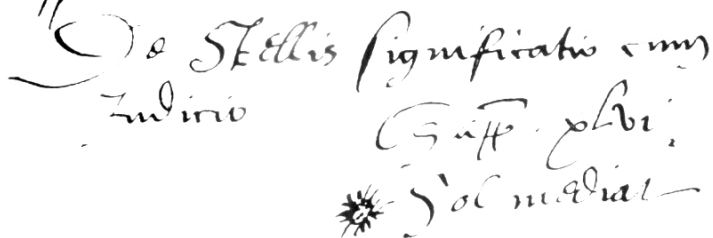 De Stellis significatio cum
Iudicio
xlvi
Sol mediat